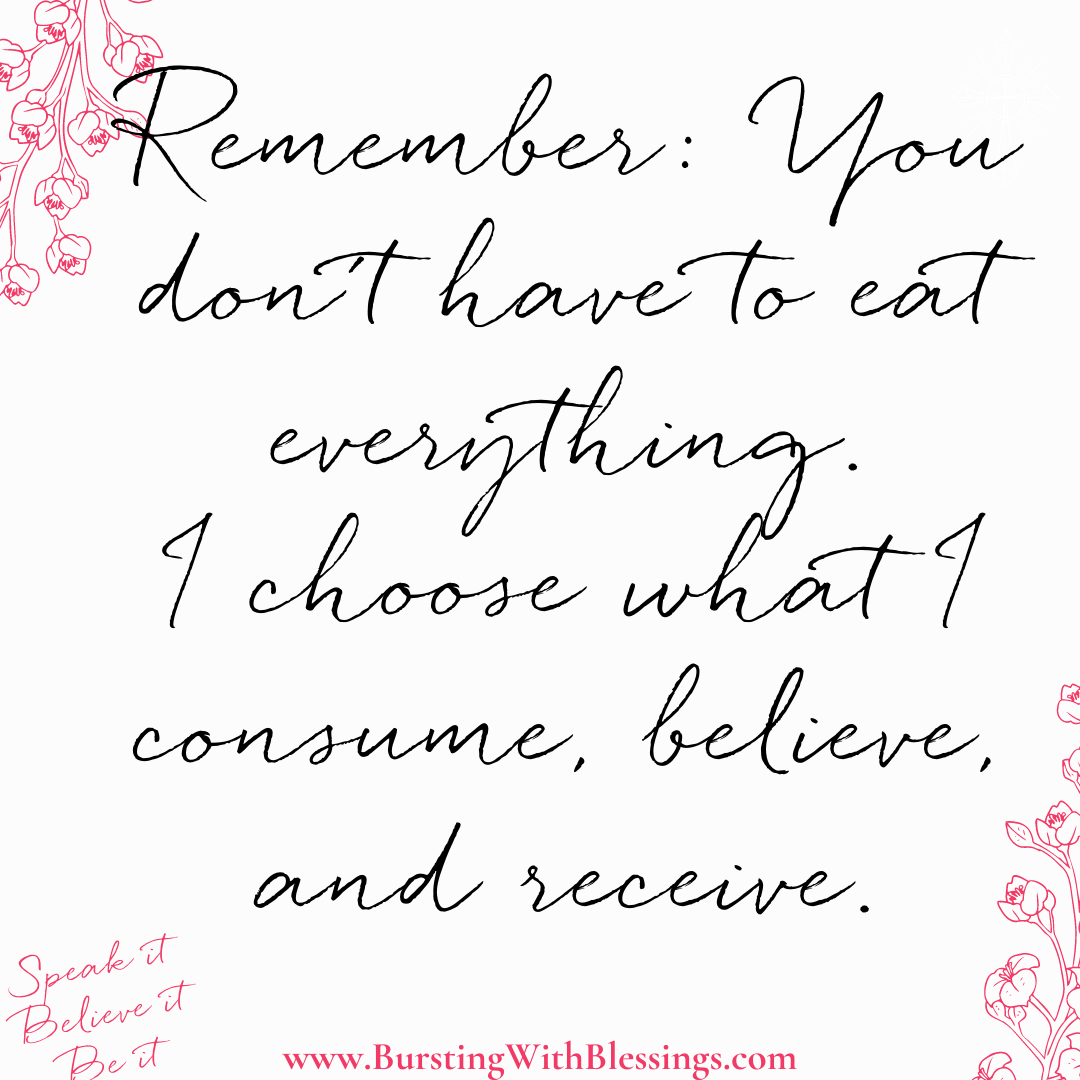 Remember: You
don't have to eat
everything.
I choose what I
consume, believe,
and receive.
Speak it
Believe it
Be it
www.BurstingWithBlessings.com